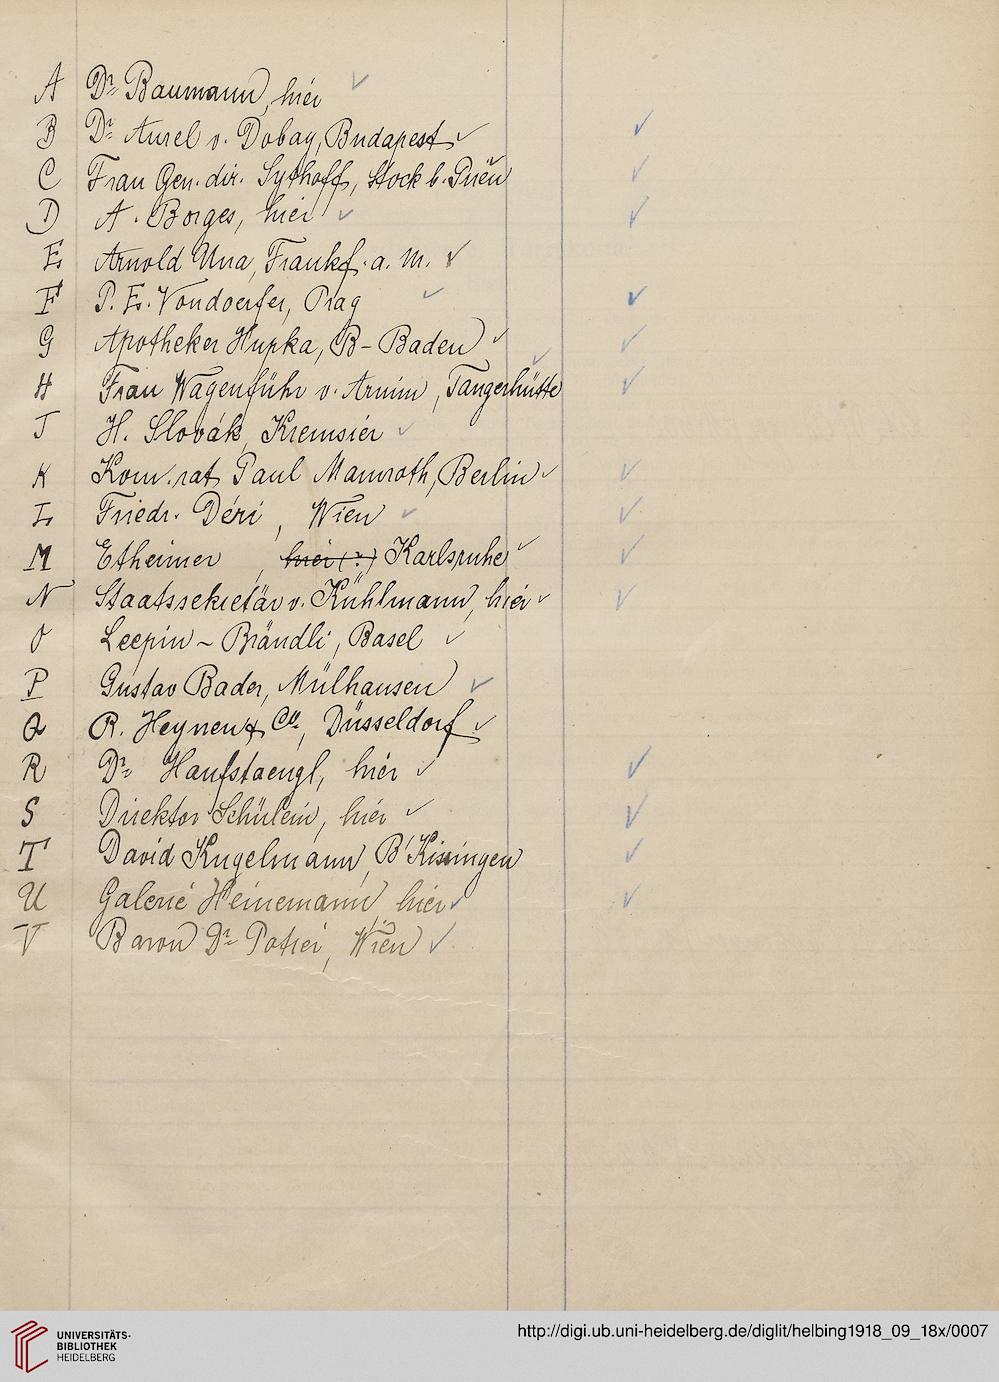 A Dr. Baumann, hier ✓
B Dr. Aurel v. Dobay, Budapest ✓ ✓
C Frau Gen. dir. Sythoff, Stock b. Prien ✓ ✓
D A. Borges, hier ✓ ✓
E Arnold Una, Frankf. a. M. ✓
F P. E. Vondoerfer, Prag ✓ ✓
G Apotheker Hupka, B-Baden ✓ ✓
H Frau Wagenführ v. Arnim, Tangerhütte ✓ ✓
J H. Slovák, Kremsier ✓
K Kom. rat Paul Mamroth, Berlin ✓ ✓
L Friedr. Déri, Wien ✓ ✓
M Etheimer, hier (?) Karlsruhe ✓ ✓
N Staatssekretär v. Kühlmann, hier ✓ ✓
O Leepin-Brändli, Basel ✓
P Gustav Bader, Mülhausen ✓
Q R. Heynen & Co, Düsseldorf ✓
R Dr. Hanfstaengl, hier ✓ ✓
S Direktor Schülein, hier ✓ ✓
T David Kugelmann, B' Kissingen ✓
U Galerie Heinemann hier ✓ ✓
V Baron Dr. Potier, Wien ✓
UNIVERSITÄTS-
BIBLIOTHEK
HEIDELBERG
http://digi.ub.uni-heidelberg.de/diglit/helbing1918_09_18x/0007